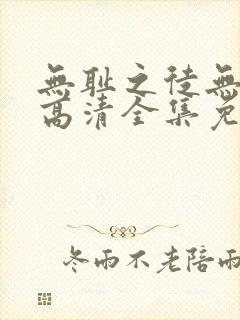 無耻之徒無
高清全集免
冬雨不老陪雨